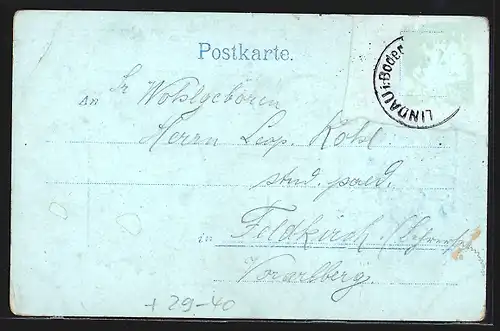 Postkarte.
LINDAU i. Boden
An Sr Wohlgeboren
Herrn Leop. Köhl
stud. paed.
in Feldkirch
Vorarlberg
+ 29-40